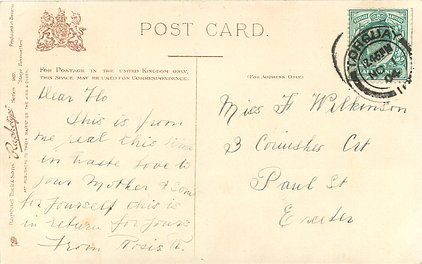 POST CARD.
FOR POSTAGE IN THE UNITED KINGDOM ONLY,
THIS SPACE MAY BE USED FOR CORRESPONDENCE.
(FOR ADDRESS ONLY.)
TORQUAY
Dear Flo
This is from
me, real this time
in haste love to
your Mother & some
for yourself this is
in return for yours
From Rosie
Miss F Wilkinson
3 Court
Paul St
Exeter